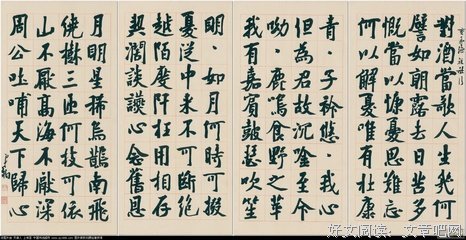 對酒當歌人生幾何
譬如朝露去日苦多
慨當以慷憂思難忘
何以解憂唯有杜康
青〻子衿悠〻我心
但為君故沉吟至今
呦〻鹿鳴食野之苹
我有嘉賓鼓瑟吹笙
明〻如月何時可掇
憂從中來不可斷絕
越陌度阡枉用相存
契闊談讌心念舊恩
月明星稀烏鵲南飛
繞樹三匝何枝可依
山不厭高海不厭深
周公吐哺天下歸心
好文阅读，文章吧网